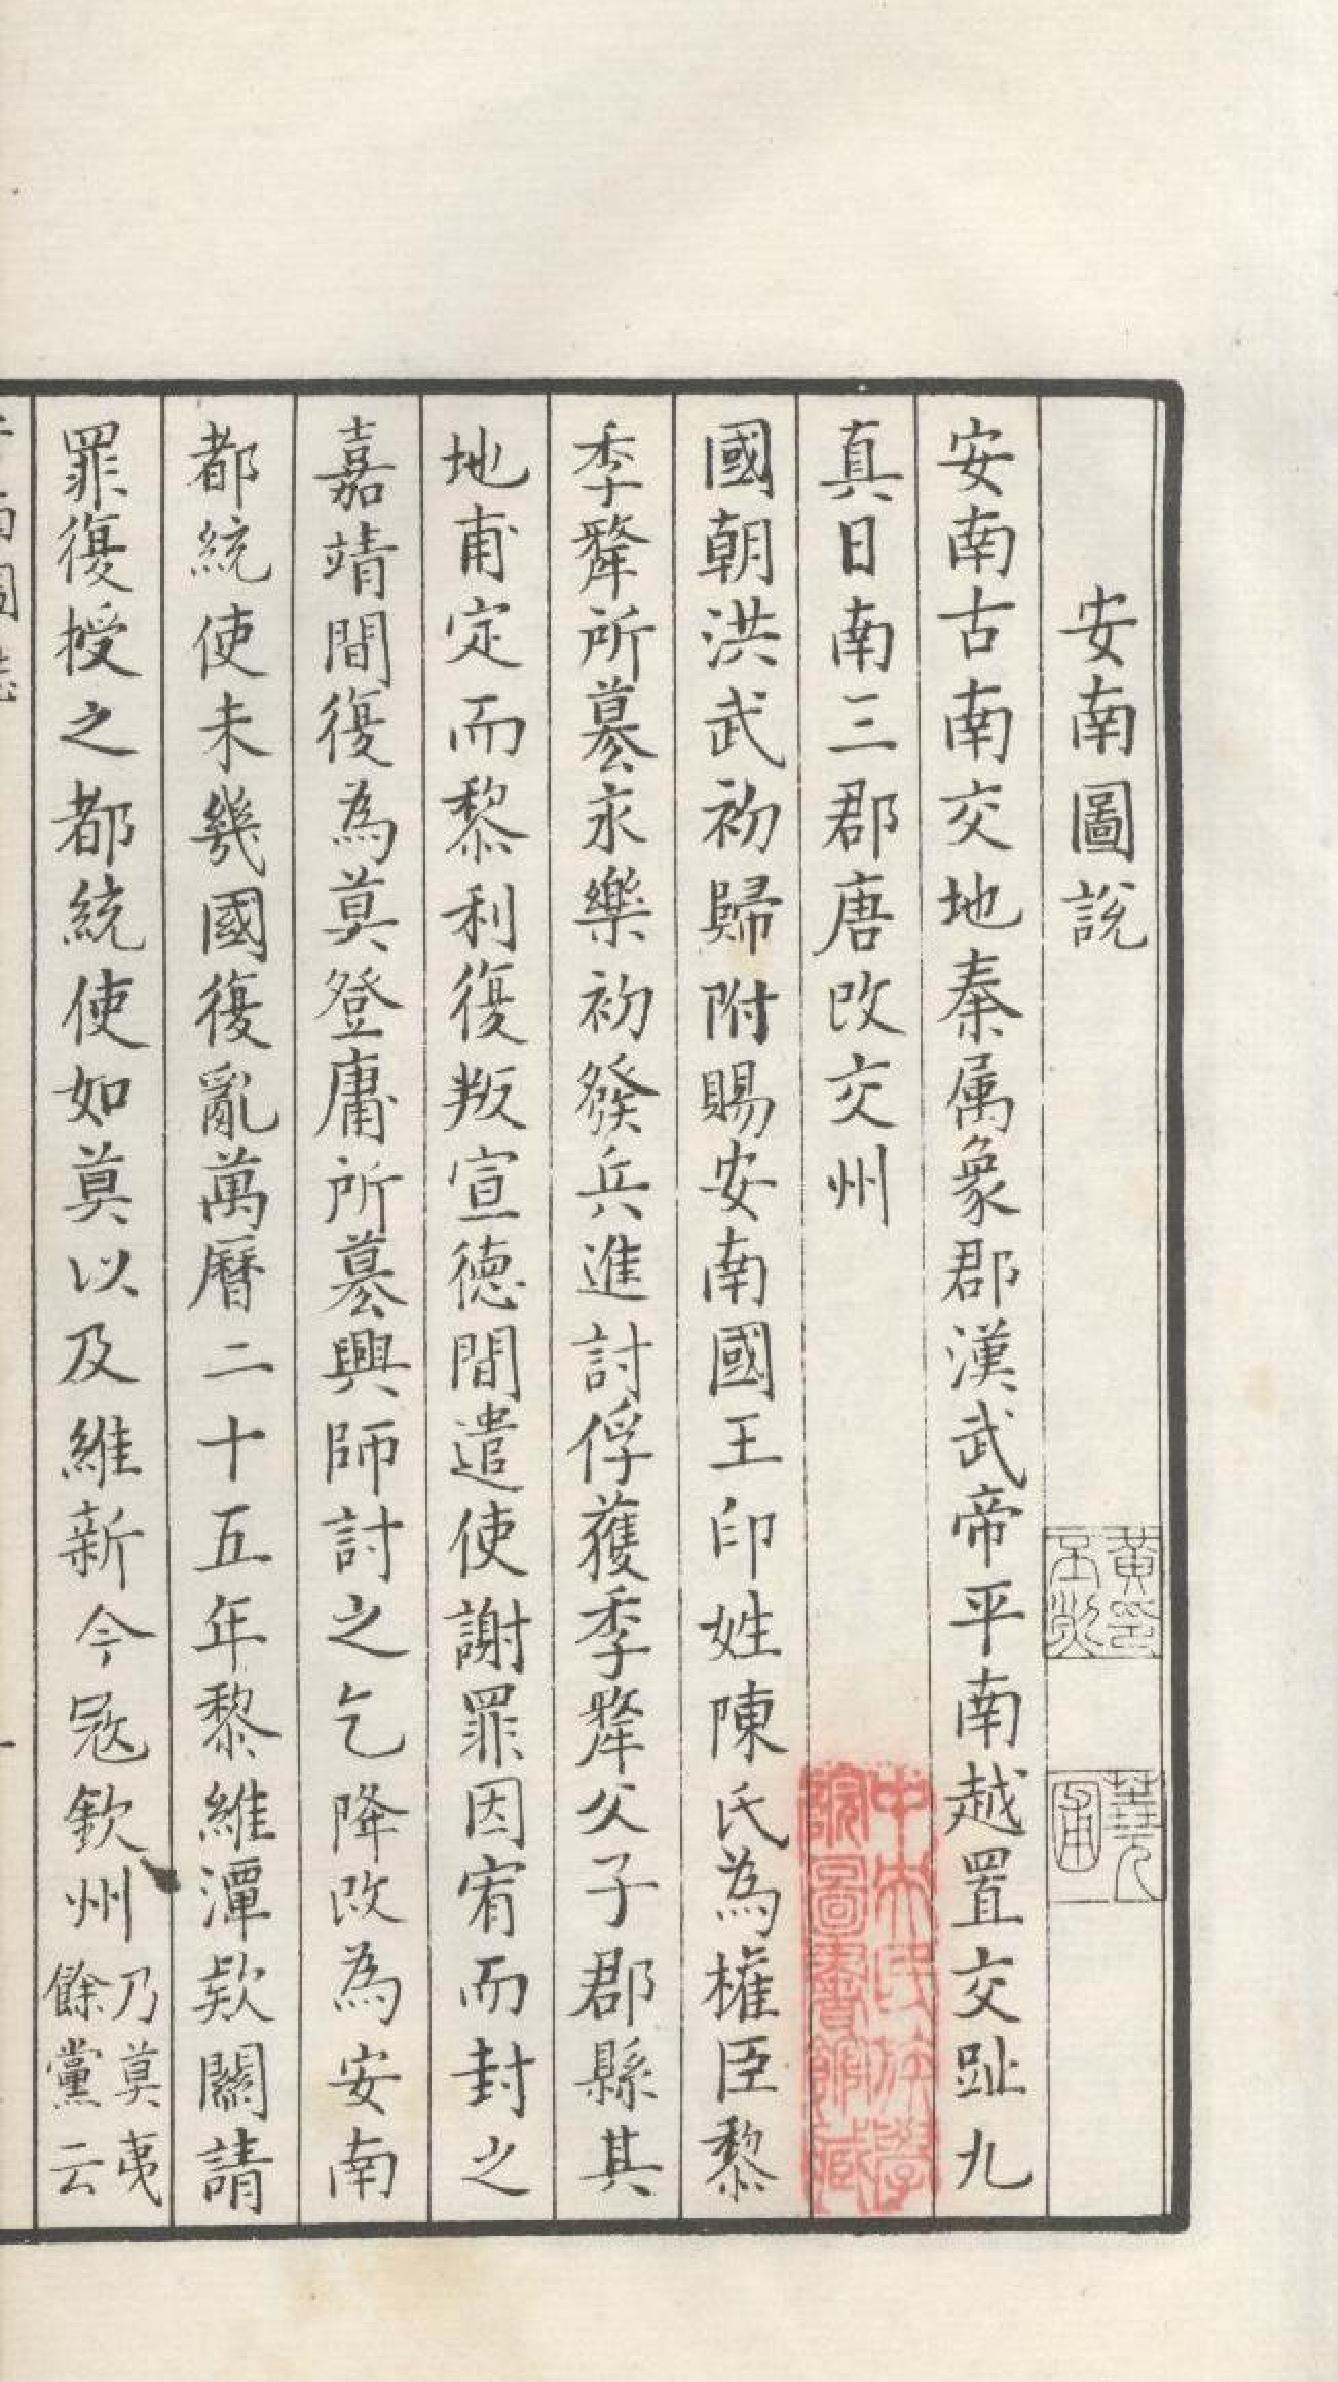 安南圖說
安南古南交地秦属象郡漢武帝平南越置交趾九
真日南三郡唐改交州
國朝洪武初歸附賜安南國王印姓陳氏為權臣黎
季犛所墓永樂初發兵進討俘獲季犛父子郡縣其
地甫定而黎利復叛宣德間遣使謝罪因宥而封之
嘉靖間復為莫登庸所墓興師討之乞降改為安南
都統使未幾國復亂萬曆二十五年黎維潭欵關請
罪復授之都統使如莫以及維新今冦欽州乃莫夷
餘黨云
中央民族學
院圖書館藏